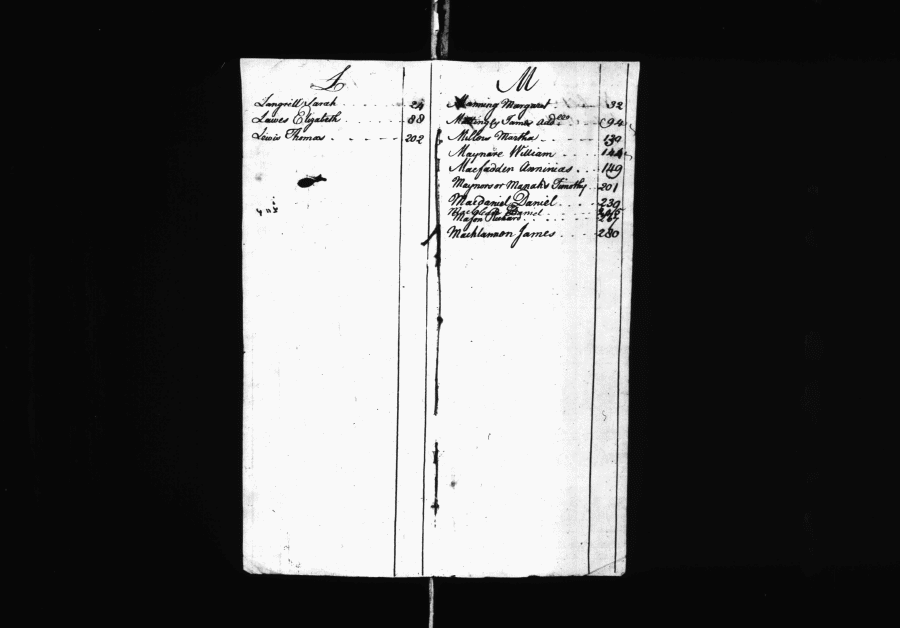 L
Langrill Sarah 24
Lawes Elizabeth 88
Lewis Thomas 202
M
Manning Margaret 32
James 94
Millow Martha 139
Maynare William 144
Macfadden Anninias 149
Maynors or Manak's Timothy 201
Macdaniel Daniel 239
Daniel
Major Richard
Macklannon James 280